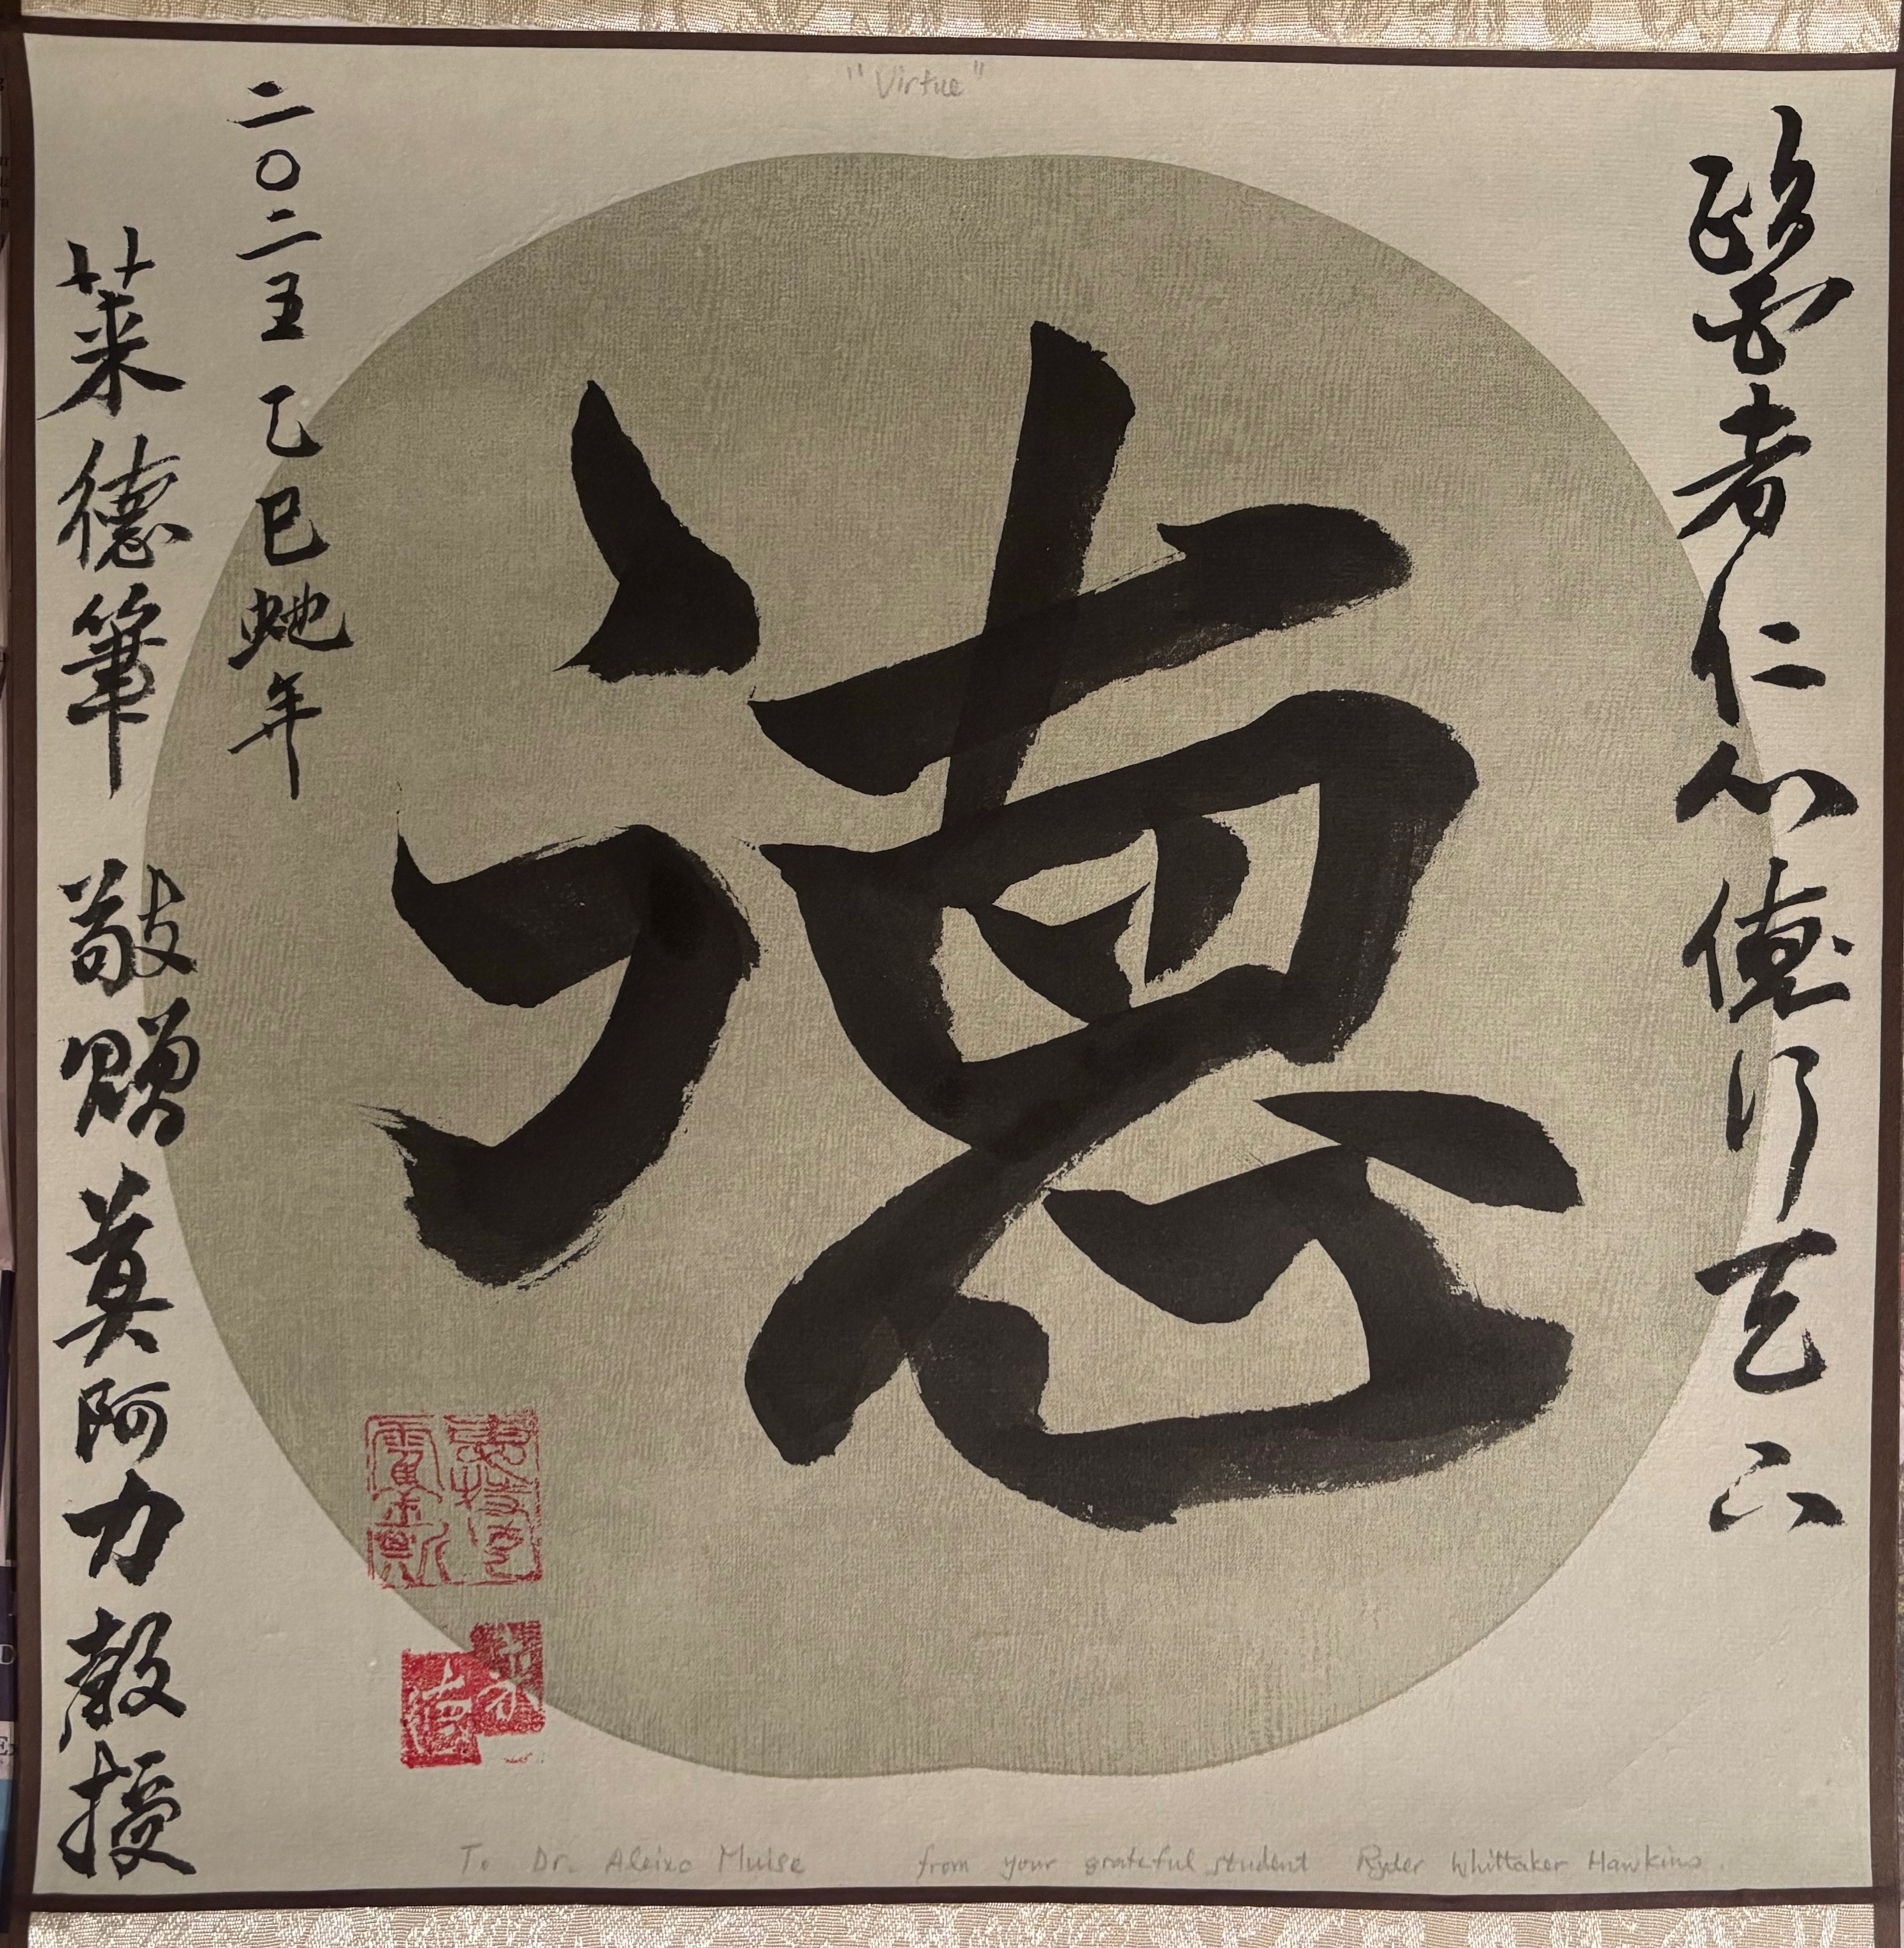 "Virtue"
醫者仁心德行天下
德
二〇二五 乙巳蛇年
萊德筆 敬贈 莫阿力教授
惠特克
霍金斯
To Dr. Aleixo Muise from your grateful student Ryder Whittaker Hawkins.